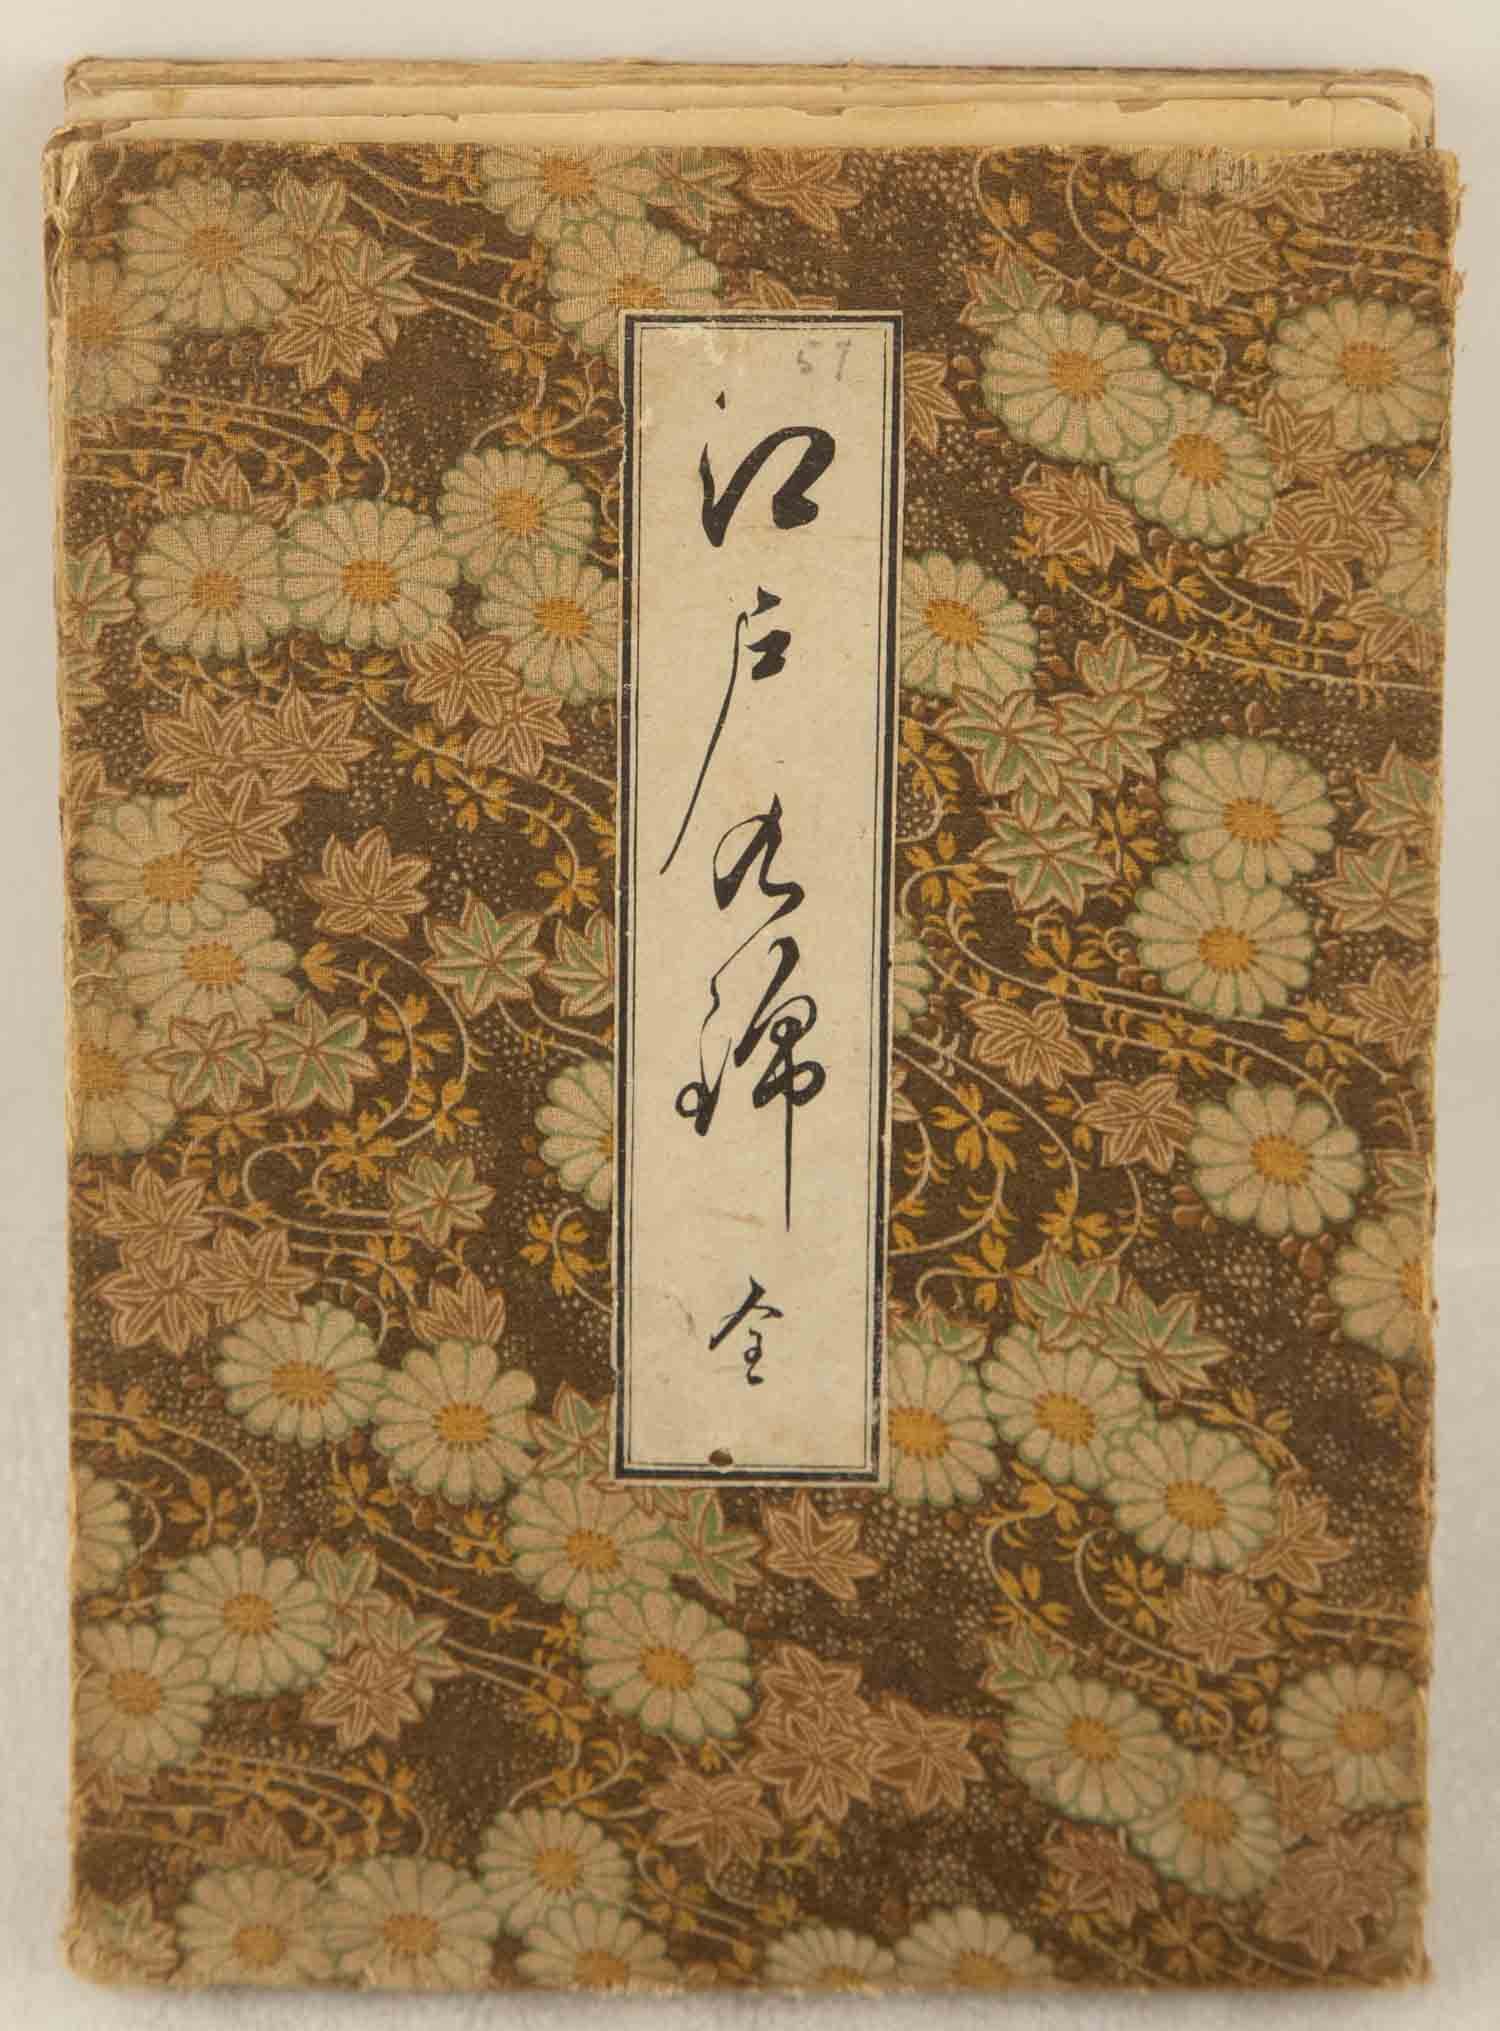 57
江戸乃錦
全